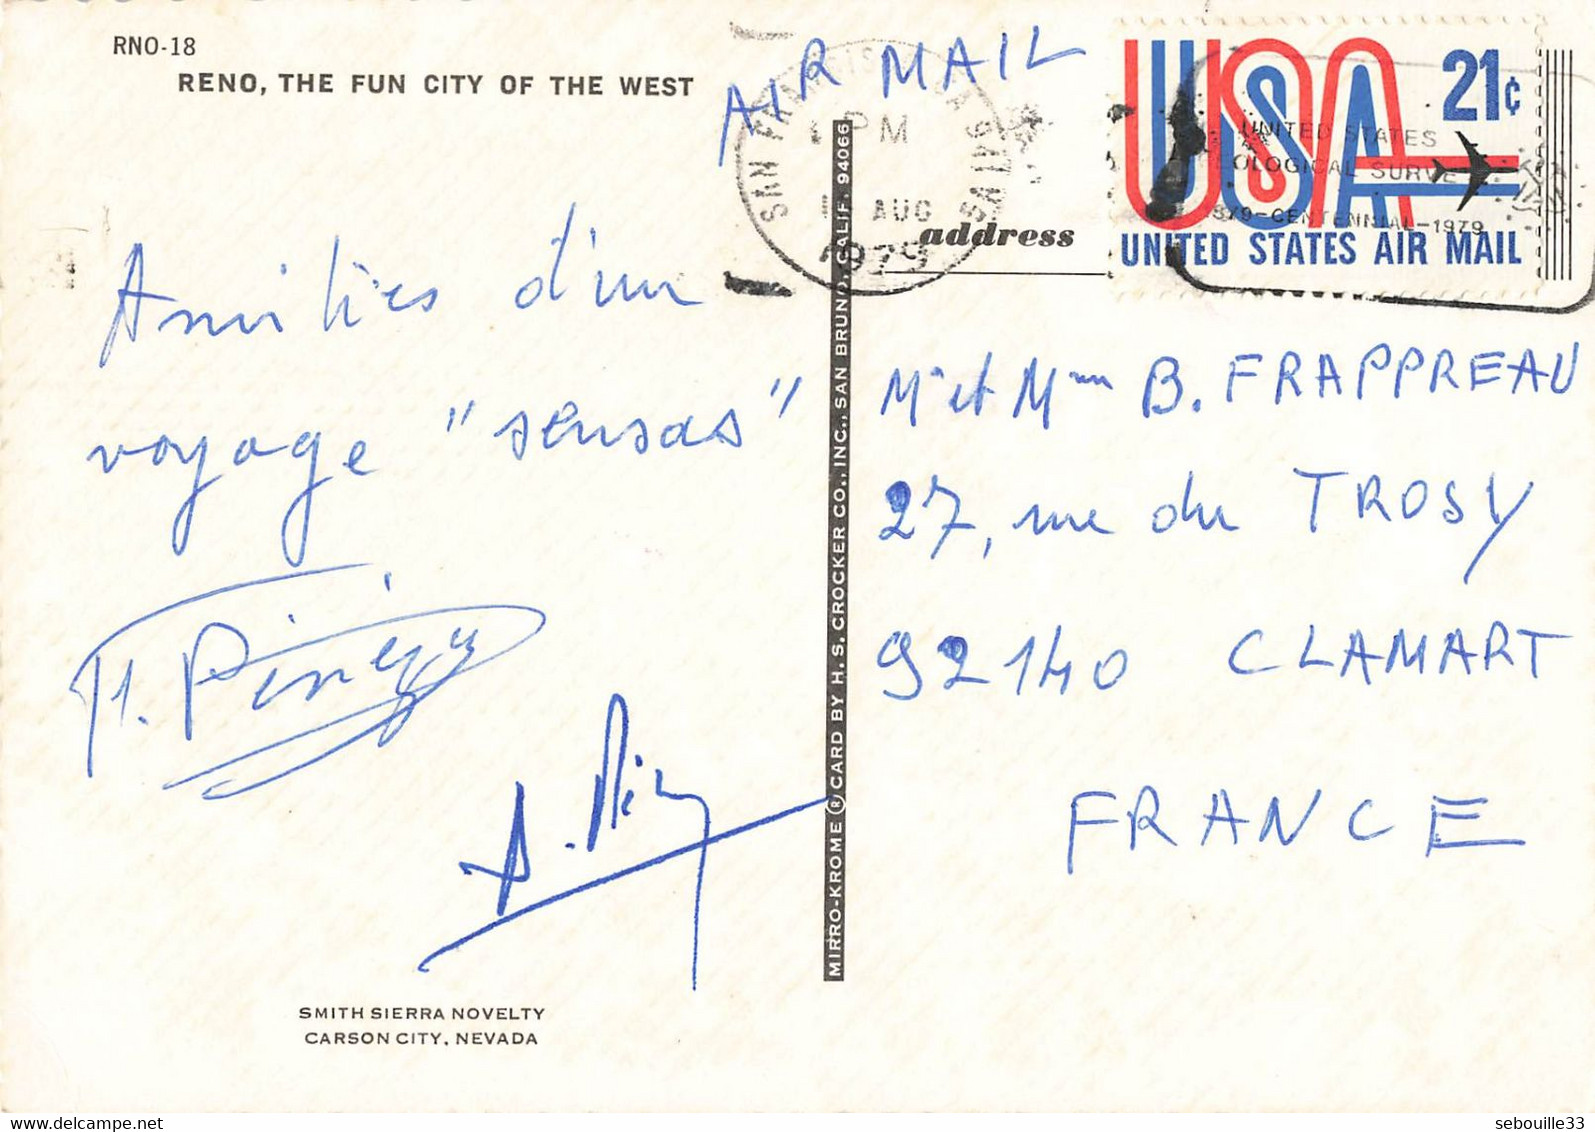 RNO-18
RENO, THE FUN CITY OF THE WEST
Amitiés d'un
voyage "sensas"
SMITH SIERRA NOVELTY
CARSON CITY, NEVADA
MIRRO-KROME ® CARD BY H. S. CROCKER CO., INC., SAN BRUNO, CALIF. 94066
AIR MAIL
PM
AUG
1979
USA 21¢
UNITED STATES AIR MAIL
UNITED STATES
GEOLOGICAL SURVEY
1879-CENTENNIAL-1979
address
Mr et Mme B. FRAPPREAU
27, rue du TROSY
92140 CLAMART
FRANCE
sebouille33